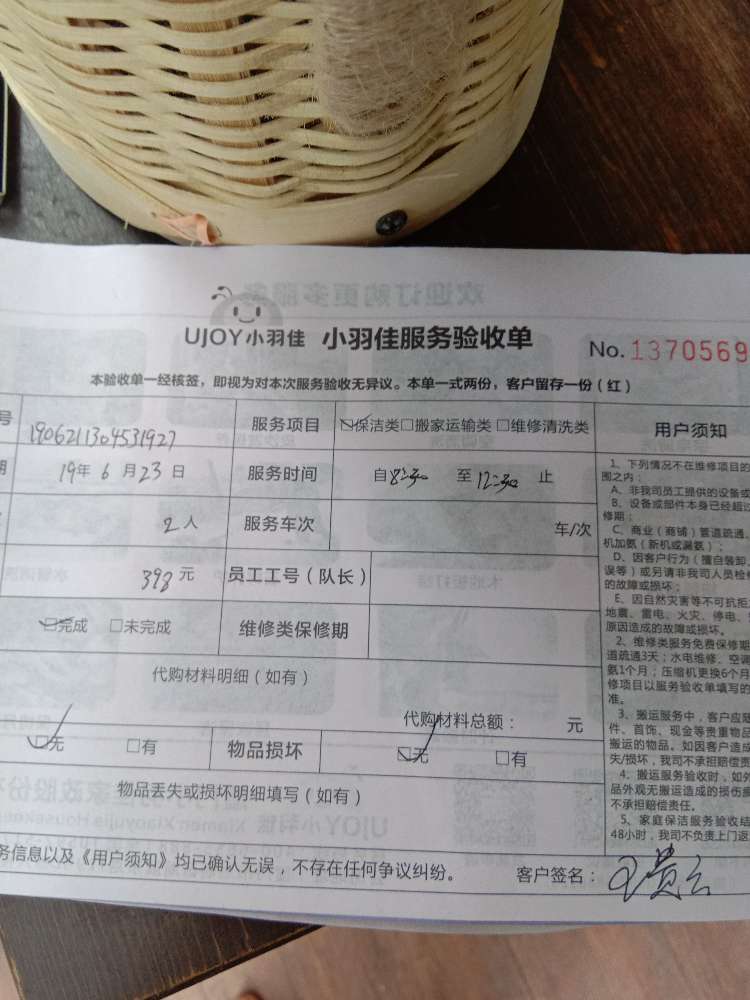 UJOY小羽佳 小羽佳服务验收单
No.1370569
本验收单一经核签，即视为对本次服务验收无异议。本单一式两份，客户留存一份（红）
号 1906211304531927 服务项目 保洁类□搬家运输类□维修清洗类
期 19年6月23日 服务时间 自8:30 至12:30 止
2人 服务车次 车/次
398元 员工工号（队长）
□完成 □未完成 维修类保修期
代购材料明细（如有）
代购材料总额： 元
□无 □有 物品损坏 □无 □有
物品丢失或损坏明细填写（如有）
务信息以及《用户须知》均已确认无误，不存在任何争议纠纷。
客户签名：
用户须知
1、下列情况不在维修项目的
围之内：
A、非我司员工提供的设备或
B、设备或部件本身已经超过
修期；
C、商业（商铺）管道疏通、
机加氨（新机或漏氨）；
D、因客户行为（擅自装卸、
误等）或另请非我司人员检修
的故障或损坏；
E、因自然灾害等不可抗拒
地震、雷电、火灾、停电、
原因造成的故障或损坏。
2、维修类服务免费保修期
道疏通3天；水电维修、空调
氨1个月；压缩机更换6个月
修项目以服务验收单填写的
准。
3、搬运服务中，客户应
件、首饰、现金等贵重物品
搬运的物品。如因客户造成
失/损坏，我司不承担赔偿责
4、搬运服务验收时，如外
品外观无搬运造成的损伤
不承担赔偿责任。
5、家庭保洁服务验收结
48小时，我司不负责上门返